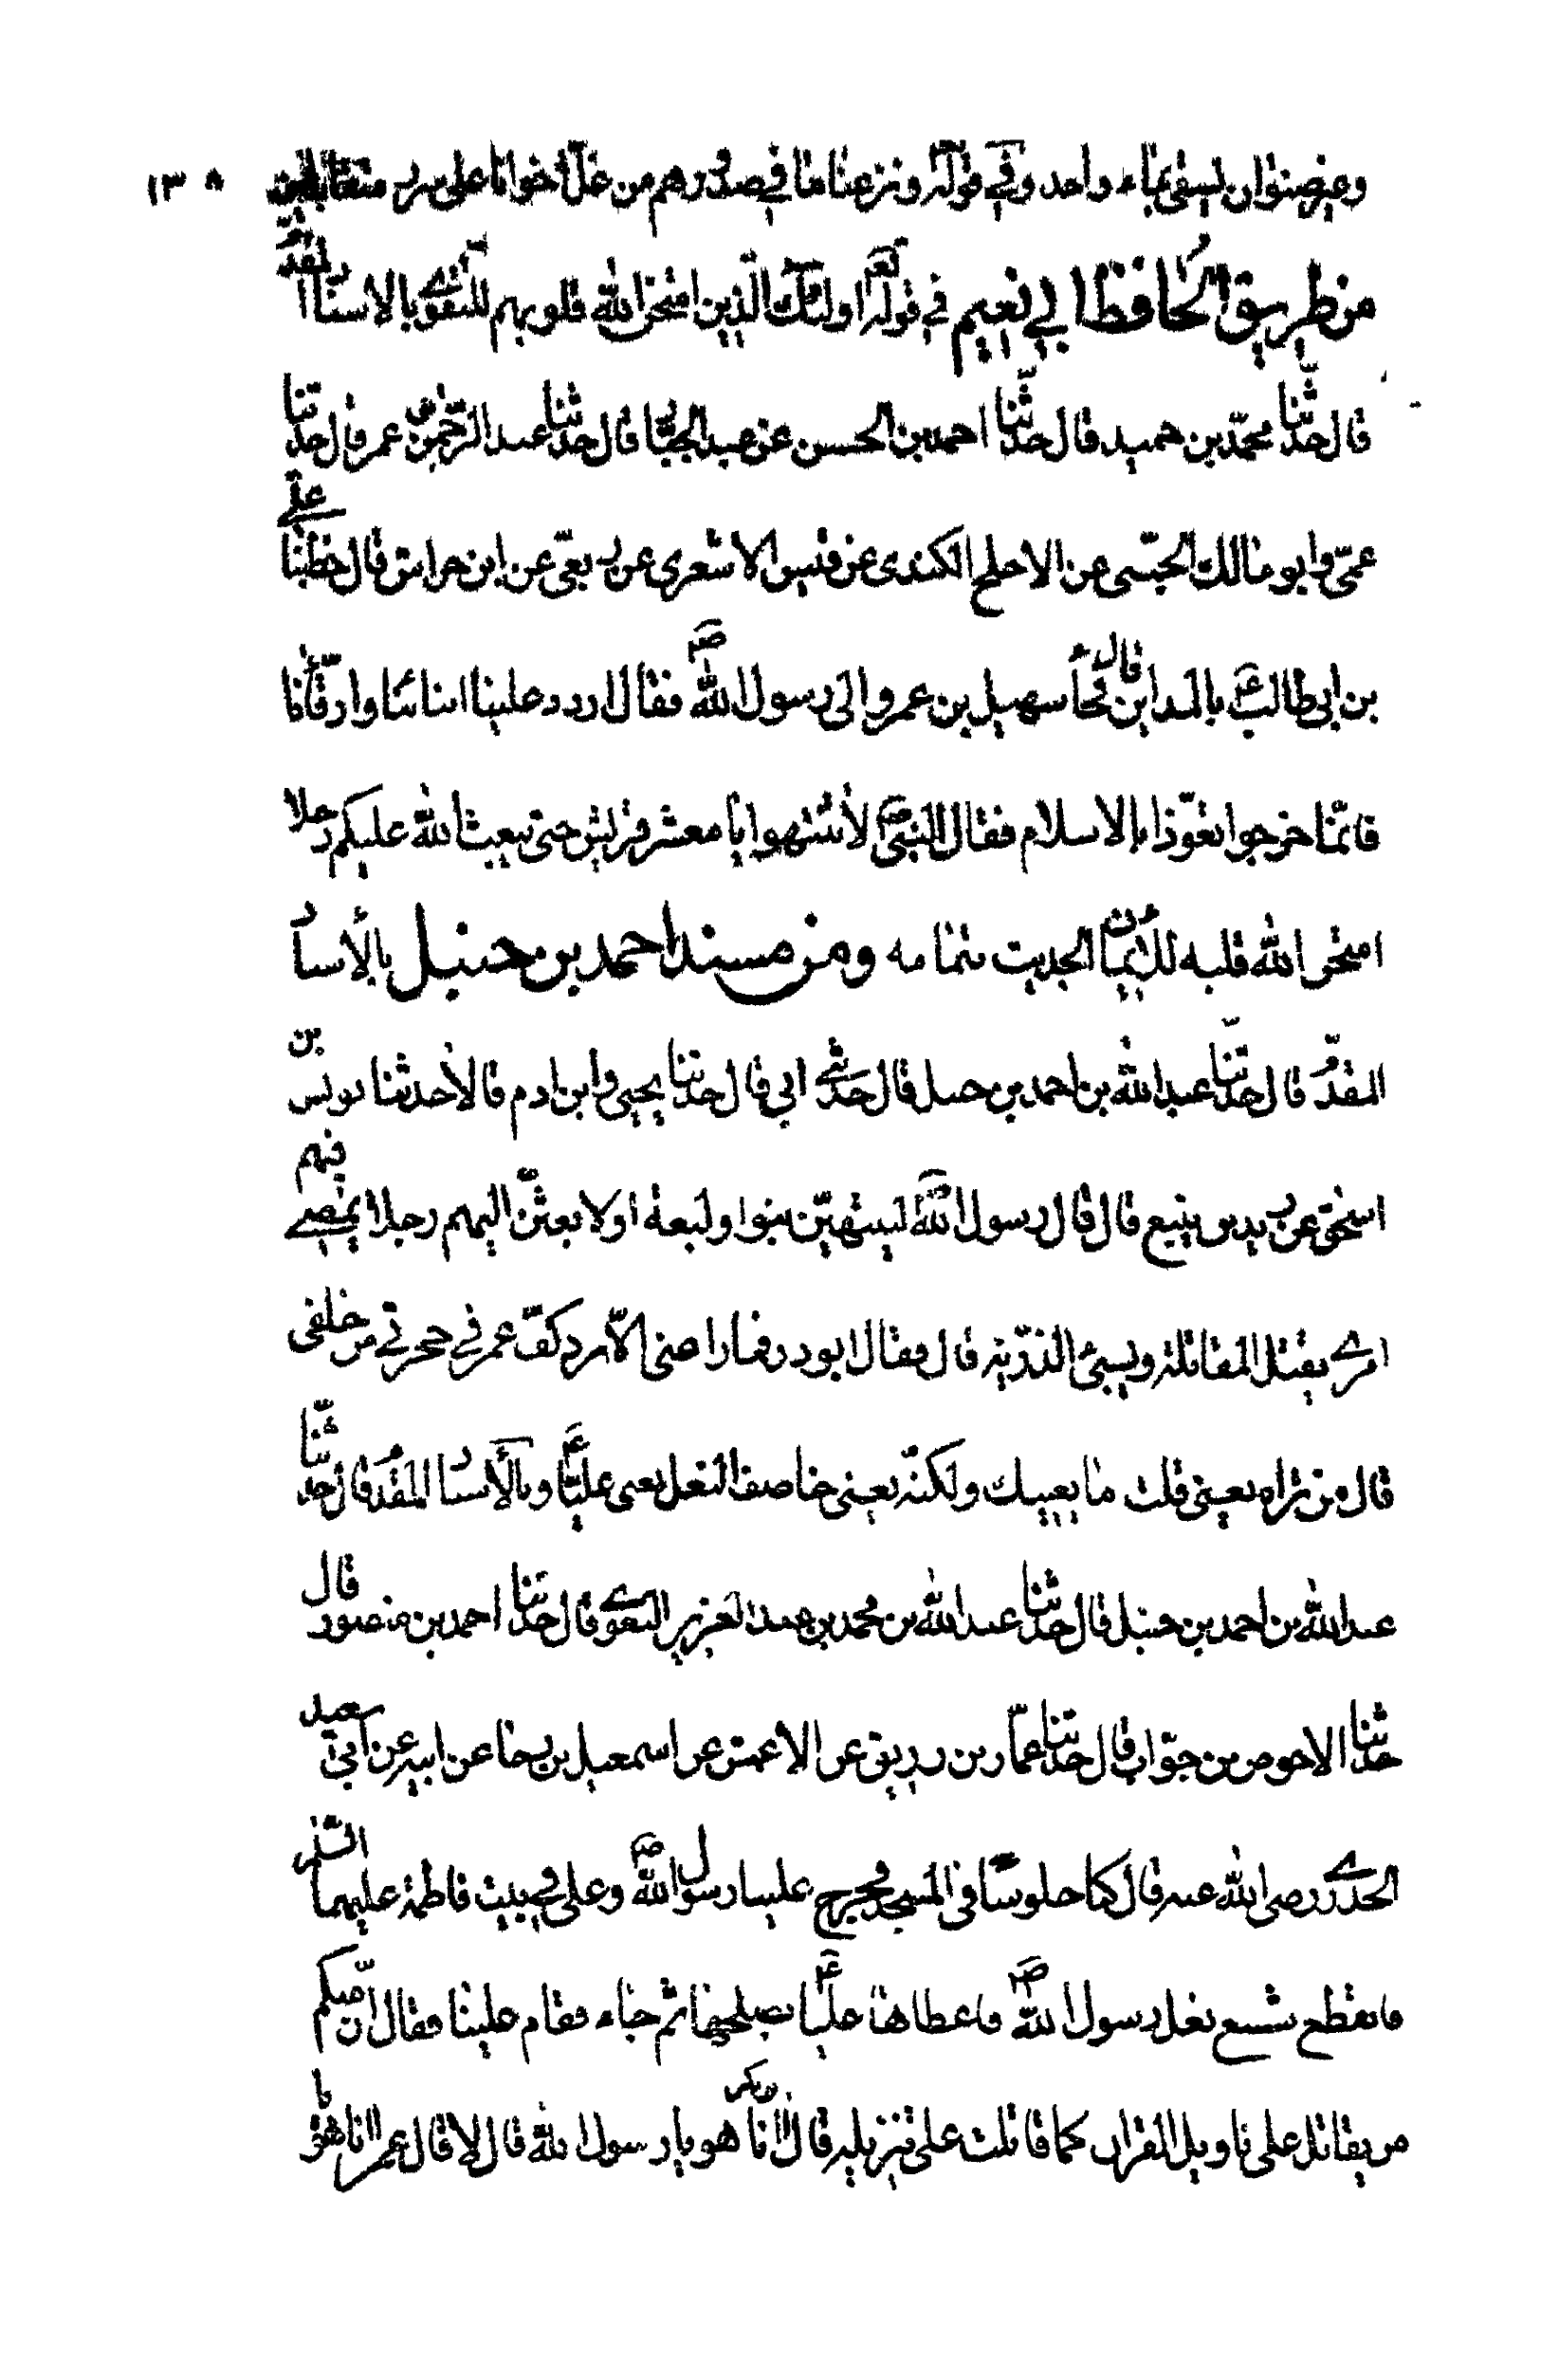 وغير صنوان يسقى بماء واحد وفي قوله ونزعنا ما في صدورهم من غل أخوانا على سرر متقابلين ١٣٨
من طريق الحافظ ابي نعيم في قوله تع اولئك الذين امتحن الله قلوبهم للتقوى بالاسناد المقدم
قال حدثنا محمد بن حميد قال حدثنا احمد بن الحسن عن عبد الجبار قال حدثنا عبد الرحمن بن عمر قال حدثنا
عمى وابو مالك الجنبى عن الاجلح الكندى عن قيس الاشعري عن ربعى عن ابن حراش قال خطبنا على
بن ابى طالب ع بالمداين قال جاء سهيل بن عمرو الى رسول الله ص فقال اردد علينا ابنائنا وارقائنا
فانما خرجوا تعوذا بالاسلام فقال النبى ص لا تنتهوا يا معشر قريش حتى يبعث الله عليكم رجلا
امتحن الله قلبه للايمان الحديث بتمامه ومن مسند احمد بن حنبل بالأسناد
المقدم قال حدثنا عبد الله بن احمد بن حنبل قال حدثنى ابي قال حدثنا يحيى وابن ادم قالا حدثنا يونس بن
اسحق عن زيد بن يثيع قال قال رسول الله ص لينتهين بنوا وليعة او لا بعثن اليهم رجلا يمضى فيهم
امرى يقتل المقاتلة ويسبى الذرية قال فقال ابو ذر فما راعنى الا برد كف عمر في حجزتي من خلفى
قال من تراه يعنى قلت ما يعنيك ولكنه يعنى خاصف النعل يعنى عليا ع وبالأسناد المقدم قال حدثنا
عبد الله بن احمد بن حنبل قال حدثنا عبد الله بن محمد بن عبد العزيز البغوى قال حدثنا احمد بن منصور قال
حدثنا الاحوص بن جواب قال حدثنا عمار بن رزيق عن الأعمش عن اسمعيل بن رجا عن ابيه عن أبي سعيد
الخدرى رضى الله عنه قال كنا جلوسا في المسجد فخرج علينا رسول الله ص وعلى في بيت فاطمة عليهما السلم
فانقطع شسع نعل رسول الله ص فاعطاها عليا ع يصلحها ثم جاء فقام علينا فقال ان منكم
من يقاتل على تاويل القران كما قاتلت على تنزيله قال ابو بكر انا هو يا رسول الله قال لا قال عمر انا هو يا